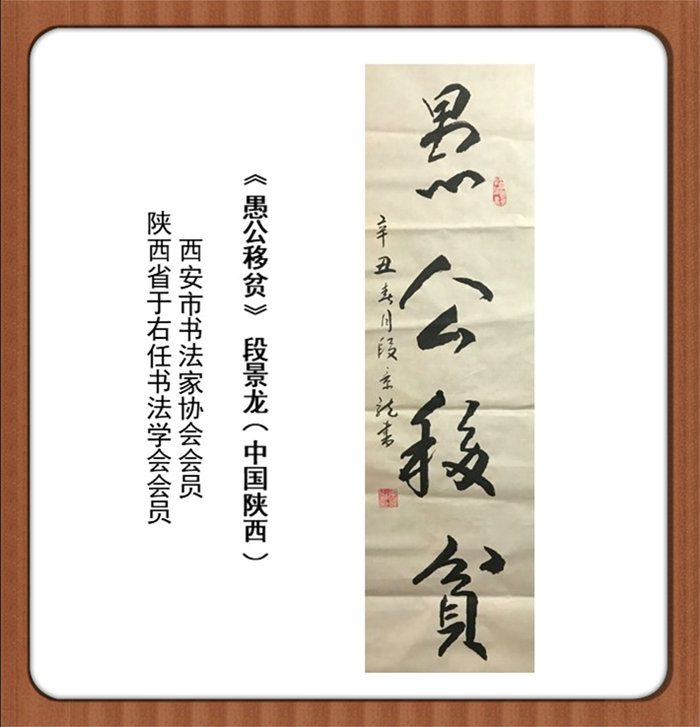 愚公移贫
辛丑春月段景龙书
《愚公移贫》 段景龙(中国陕西)
西安市书法家协会会员
陕西省于右任书法学会会员